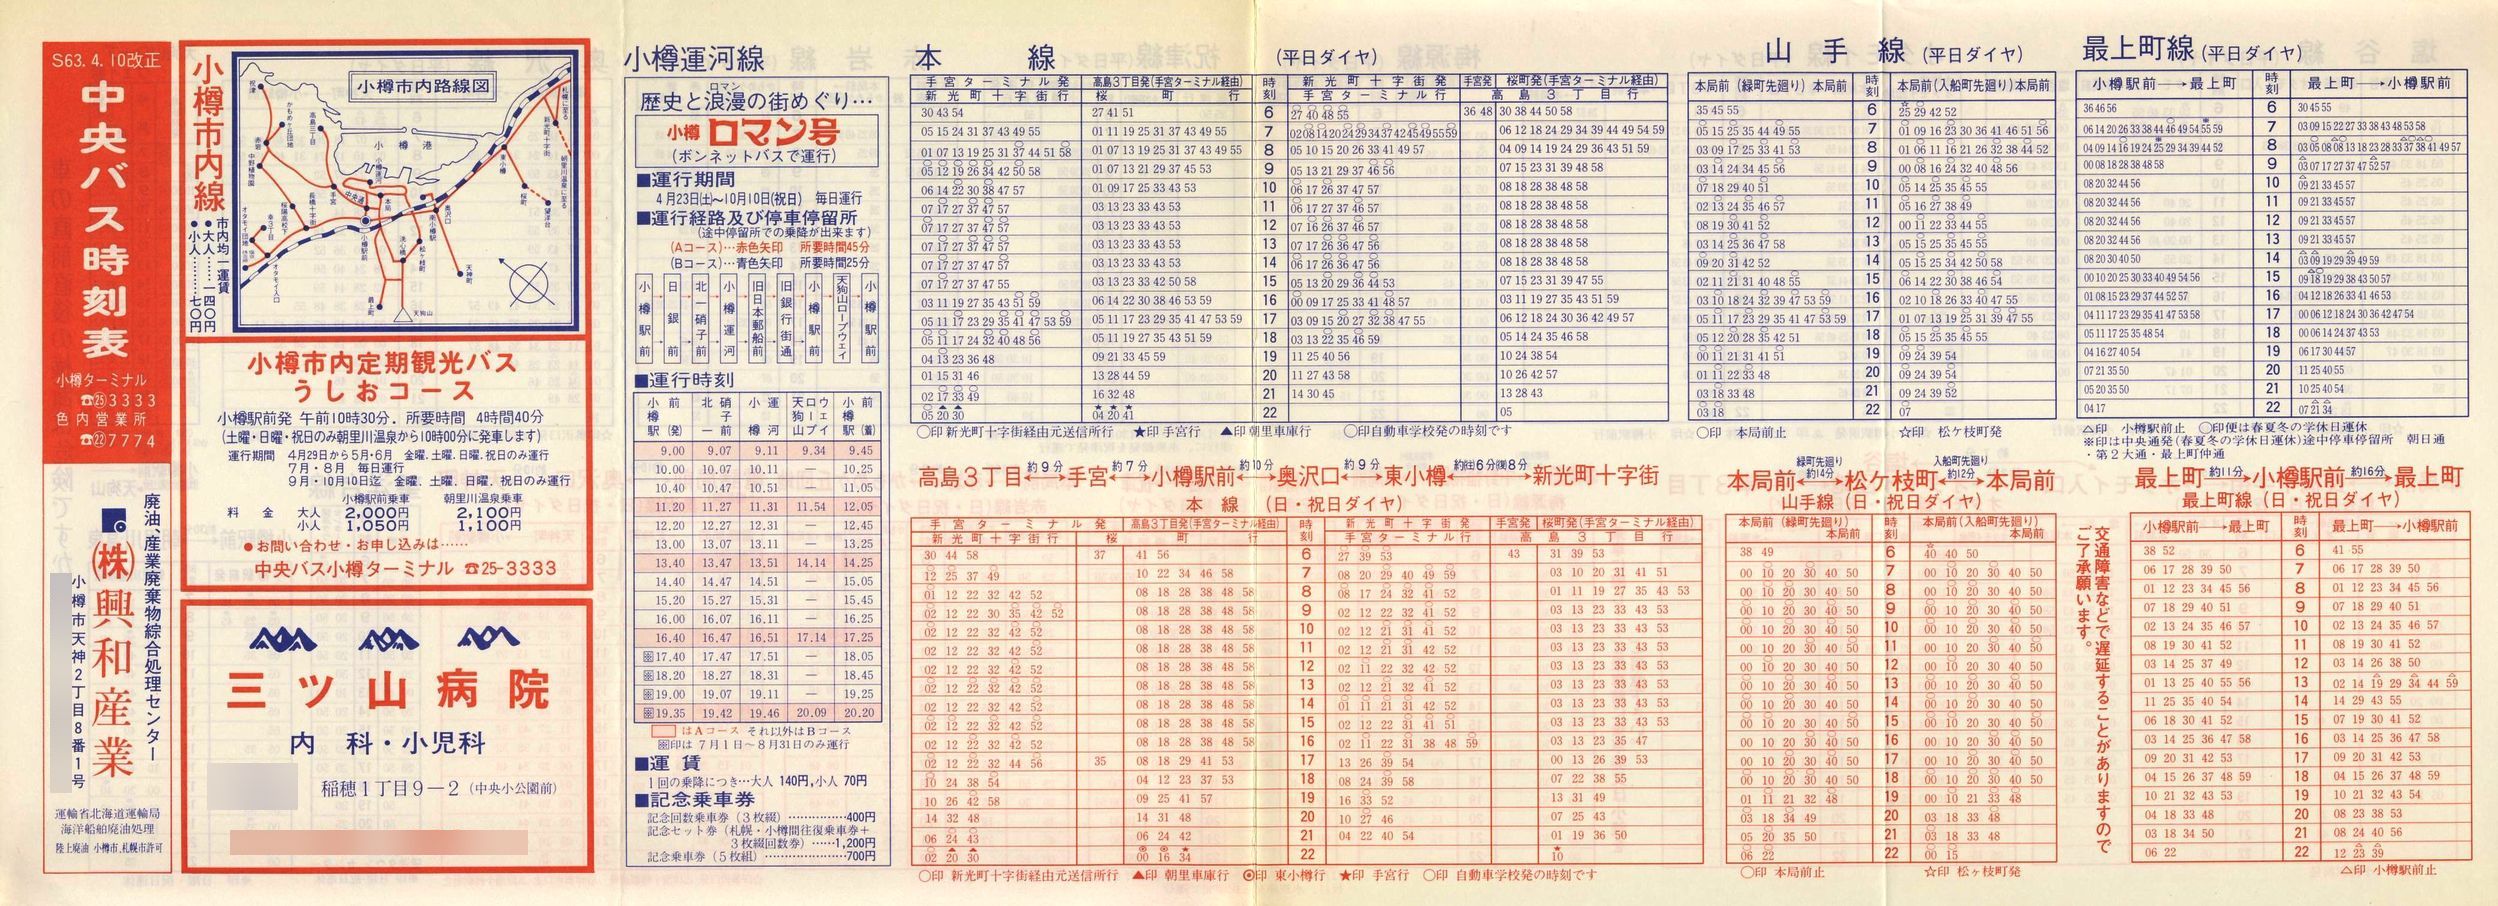 S63.4.10改正
中央バス時刻表
小樽ターミナル
☎㉕3333
色内営業所
☎㉒7774
廃油、産業廃棄物綜合処理センター
㈱興和産業
小樽市天神2丁目8番1号
運輸省北海道運輸局
海洋船舶廃油処理
陸上廃油 小樽市、札幌市許可
小樽市内線
市内均一運賃
●大人……一四〇円
●小人……七〇円
小樽市内路線図
祝津
かもめヶ丘団地
高島三丁目
赤岩
中野植物園
小樽港
手宮
中央通
本局
小樽駅前
天神町
最上町
天狗山
東小樽
桜町
望洋台
新光町十字街
札幌に至る
朝里川温泉に至る
小樽市内定期観光バス
うしおコース
小樽駅前発 午前10時30分．所要時間 4時間40分
(土曜・日曜・祝日のみ朝里川温泉から10時00分に発車します)
運行期間 4月29日から5月・6月 金曜.土曜.日曜.祝日のみ運行
7月・8月 毎日運行
9月・10月10日迄 金曜、土曜、日曜、祝日のみ運行
小樽駅前乗車 朝里川温泉乗車
料金 大人 2,000円 2,100円
小人 1,050円 1,100円
●お問い合わせ・お申し込みは……
中央バス小樽ターミナル ☎25-3333
三ツ山病院
内科・小児科
稲穂1丁目9−2(中央小公園前)
小樽運河線
歴史と浪漫の街めぐり…
ロマン
小樽 ロマン号
(ボンネットバスで運行)
■運行期間
4月23日(土)〜10月10日(祝日) 毎日運行
■運行経路及び停車停留所
(途中停留所での乗降が出来ます)
(Aコース)…赤色矢印 所要時間45分
(Bコース)…青色矢印 所要時間25分
小樽駅前
日銀前
北一硝子前
小樽運河
旧日本郵船前
旧銀行街通
小樽駅前
天狗山ロープウェイ
小樽駅前
■運行時刻
小樽駅前(発) 北一硝子前 小樽運河 天狗山ロープウェイ 小樽駅前(着)
9.00 9.07 9.11 9.34 9.45
10.00 10.07 10.11 — 10.25
10.40 10.47 10.51 — 11.05
11.20 11.27 11.31 11.54 12.05
12.20 12.27 12.31 — 12.45
13.00 13.07 13.11 — 13.25
13.40 13.47 13.51 14.14 14.25
14.40 14.47 14.51 — 15.05
15.20 15.27 15.31 — 15.45
16.00 16.07 16.11 — 16.25
16.40 16.47 16.51 17.14 17.25
※17.40 17.47 17.51 — 18.05
※18.20 18.27 18.31 — 18.45
※19.00 19.07 19.11 — 19.25
※19.35 19.42 19.46 20.09 20.20
はAコース それ以外はBコース
※印は7月1日〜8月31日のみ運行
■運賃
1回の乗降につき…大人 140円,小人 70円
■記念乗車券
記念回数乗車券(3枚綴)……………400円
記念セット券(札幌・小樽間往復乗車券＋
3枚綴回数券)……1,200円
記念乗車券(5枚組)…………………700円
本線 (平日ダイヤ)
手宮ターミナル発 高島3丁目発(手宮ターミナル経由) 時刻 新光町十字街発 手宮発 桜町発(手宮ターミナル経由)
新光町十字街行 桜町行 手宮ターミナル行 高島3丁目行
30 43 54 27 41 51 6 27 40 48 55 36 48 30 38 44 50 58
05 15 24 31 37 43 49 55 01 11 19 25 31 37 43 49 55 7 02 08 14 20 24 29 34 37 42 45 49 55 59 06 12 18 24 29 34 39 44 49 54 59
01 07 13 19 25 31 37 44 51 58 01 07 13 19 25 31 37 43 49 55 8 05 10 15 20 26 33 41 49 57 04 09 14 19 24 29 36 43 51 59
05 12 19 26 34 42 50 58 01 07 13 21 29 37 45 53 9 05 13 21 29 37 46 56 07 15 23 31 39 48 58
06 14 22 30 38 47 57 01 09 17 25 33 43 53 10 06 17 26 37 47 57 08 18 28 38 48 58
07 17 27 37 47 57 03 13 23 33 43 53 11 06 17 27 36 47 57 08 18 28 38 48 58
07 17 27 37 47 57 03 13 23 33 43 53 12 07 16 26 37 47 57 08 18 28 38 48 58
07 17 27 37 47 57 03 13 23 33 43 53 13 07 17 26 36 47 56 08 18 28 38 48 58
07 17 27 37 47 57 03 13 23 33 43 53 14 06 17 26 36 47 56 08 18 28 38 48 58
07 17 27 37 47 55 03 13 23 33 42 50 58 15 05 13 20 29 36 44 53 07 15 23 31 39 47 55
03 11 19 27 35 43 51 59 06 14 22 30 38 46 53 59 16 00 09 17 25 33 41 48 57 03 11 19 27 35 43 51 59
05 11 17 23 29 35 41 47 53 59 05 11 17 23 29 35 41 47 53 59 17 03 09 15 20 27 32 38 47 55 06 12 18 24 30 36 42 49 57
05 11 17 24 32 40 48 56 05 11 19 27 35 43 51 59 18 03 13 22 35 46 59 05 14 24 35 46 58
04 13 23 36 48 09 21 33 45 59 19 11 25 40 56 10 24 38 54
01 15 31 46 13 28 44 59 20 11 27 43 58 10 26 42 57
02 17 33 49 16 32 48 21 14 30 45 13 28 43
05 20 30 04 20 41 22 05
○印 新光町十字街経由元送信所行 ★印 手宮行 ▲印 朝里車庫行 ○印自動車学校発の時刻です
高島3丁目 約9分 手宮 約7分 小樽駅前 約10分 奥沢口 約9分 東小樽 約(往)6分(復)8分 新光町十字街
本線 (日・祝日ダイヤ)
手宮ターミナル発 高島3丁目発(手宮ターミナル経由) 時刻 新光町十字街発 手宮発 桜町発(手宮ターミナル経由)
新光町十字街行 桜町行 手宮ターミナル行 高島3丁目行
30 44 58 37 41 56 6 27 39 53 43 31 39 53
12 25 37 49 10 22 34 46 58 7 08 20 29 40 49 59 03 10 20 31 41 51
01 12 22 32 42 52 08 18 28 38 48 58 8 08 17 24 32 41 52 01 11 19 27 35 43 53
02 12 22 30 35 42 52 08 18 28 38 48 58 9 02 12 22 32 41 52 03 13 23 33 43 53
02 12 22 32 42 52 08 18 28 38 48 58 10 02 12 21 31 41 52 03 13 23 33 43 53
02 12 22 32 42 52 08 18 28 38 48 58 11 02 12 21 31 42 52 03 13 23 33 43 53
02 12 22 32 42 52 08 18 28 38 48 58 12 02 11 22 32 42 52 03 13 23 33 43 53
02 12 22 32 42 52 08 18 28 38 48 58 13 02 12 21 32 41 52 03 13 23 33 43 53
02 12 22 32 42 52 08 18 28 38 48 58 14 01 11 21 31 42 52 03 13 23 33 43 53
02 12 22 32 42 52 08 18 28 38 48 58 15 02 12 22 31 41 51 03 13 23 33 43 53
02 12 22 32 42 52 08 18 28 38 48 58 16 02 11 22 31 38 48 59 03 13 23 35 47
02 12 22 32 44 56 35 08 18 29 41 53 17 13 26 39 54 00 13 26 39 53
10 24 38 54 04 12 23 37 53 18 08 24 39 58 07 22 38 55
10 26 42 58 09 25 41 57 19 16 33 52 13 31 49
14 32 48 14 31 48 20 10 27 46 07 25 43
06 24 43 06 24 42 21 04 22 40 54 01 19 36 50
02 20 30 00 16 34 22 10
○印 新光町十字街経由元送信所行 ▲印 朝里車庫行 ◎印 東小樽行 ★印 手宮行 ○印 自動車学校発の時刻です
山手線 (平日ダイヤ)
本局前(緑町先廻り)本局前 時刻 本局前(入船町先廻り)本局前
35 45 55 6 25 29 42 52
05 15 25 35 44 49 55 7 01 09 16 23 30 36 41 46 51 56
03 09 17 25 33 41 53 8 01 06 11 16 21 26 32 38 44 52
03 14 24 34 45 56 9 00 08 16 24 32 40 48 56
07 18 29 40 51 10 05 14 25 35 45 55
02 13 24 35 46 57 11 05 16 27 38 49
08 19 30 41 52 12 00 11 22 33 44 55
03 14 25 36 47 58 13 05 15 25 35 45 55
09 20 31 42 52 14 05 15 25 34 42 50 58
02 11 21 31 40 48 55 15 06 14 22 30 38 46 54
03 10 18 24 32 39 47 53 59 16 02 10 18 26 33 40 47 55
05 11 17 23 29 35 41 47 53 59 17 01 07 13 19 25 31 39 47 55
05 12 20 28 35 42 51 18 05 15 25 35 45 55
00 11 21 31 41 51 19 09 24 39 54
01 11 22 33 48 20 09 24 39 54
03 18 33 48 21 09 24 39 52
03 18 22 07
○印 本局前止 ☆印 松ケ枝町発
本局前 緑町先廻り 約14分 松ケ枝町 入船町先廻り 約12分 本局前
山手線(日・祝日ダイヤ)
本局前(緑町先廻り)本局前 時刻 本局前(入船町先廻り)本局前
38 49 6 40 40 50
00 10 20 30 40 50 7 00 10 20 30 40 50
00 10 20 30 40 50 8 00 10 20 30 40 50
00 10 20 30 40 50 9 00 10 20 30 40 50
00 10 20 30 40 50 10 00 10 20 30 40 50
00 10 20 30 40 50 11 00 10 20 30 40 50
00 10 20 30 40 50 12 00 10 20 30 40 50
00 10 20 30 40 50 13 00 10 20 30 40 50
00 10 20 30 40 50 14 00 10 20 30 40 50
00 10 20 30 40 50 15 00 10 20 30 40 50
00 10 20 30 40 50 16 00 10 20 30 40 50
00 10 20 30 40 50 17 00 10 20 30 40 50
00 10 20 30 40 50 18 00 10 20 30 40 50
01 11 21 32 48 19 00 10 21 33 48
03 18 34 49 20 03 18 33 48
05 20 35 50 21 03 18 33 48
06 22 22 00 15
○印 本局前止 ☆印 松ヶ枝町発
最上町線(平日ダイヤ)
小樽駅前→最上町 時刻 最上町→小樽駅前
36 46 56 6 30 45 55
06 14 20 26 33 38 44 46 49 54 55 59 7 03 09 15 22 27 33 38 43 48 53 58
04 09 14 16 19 24 25 29 34 39 44 52 8 03 05 08 08 13 18 23 28 33 37 38 41 49 57
00 08 18 28 38 48 58 9 03 07 17 27 37 47 52 57
08 20 32 44 56 10 09 21 33 45 57
08 20 32 44 56 11 09 21 33 45 57
08 20 32 44 56 12 09 21 33 45 57
08 20 32 44 56 13 09 21 33 45 57
08 20 30 40 50 14 03 09 19 29 39 49 59
00 10 20 25 30 33 40 49 54 56 15 09 18 19 29 38 43 50 57
01 08 15 23 29 37 44 52 57 16 04 12 18 26 33 41 46 53
04 11 17 23 29 35 41 47 53 58 17 00 06 12 18 24 30 36 42 47 54
05 11 17 25 35 48 54 18 00 06 14 24 37 43 53
04 16 27 40 54 19 06 17 30 44 57
07 21 35 50 20 11 25 40 55
05 20 35 50 21 10 25 40 54
04 17 22 07 21 34
△印 小樽駅前止 ○印便は春夏冬の学休日運休
※印は中央通発(春夏冬の学休日運休)途中停車停留所 朝日通
・第2大通・最上町仲通
最上町 約11分 小樽駅前 約16分 最上町
最上町線(日・祝日ダイヤ)
小樽駅前→最上町 時刻 最上町→小樽駅前
38 52 6 41 55
06 17 28 39 50 7 06 17 28 39 50
01 12 23 34 45 56 8 01 12 23 34 45 56
07 18 29 40 51 9 07 18 29 40 51
02 13 24 35 46 57 10 02 13 24 35 46 57
08 19 30 41 52 11 08 19 30 41 52
03 14 25 37 49 12 03 14 26 38 50
01 13 25 40 55 56 13 02 14 19 29 34 44 59
11 25 35 40 54 14 14 29 43 55
06 18 30 41 52 15 07 19 30 41 52
03 14 25 36 47 58 16 03 14 25 36 47 58
09 20 31 42 53 17 09 20 31 42 53
04 15 26 37 48 59 18 04 15 26 37 48 59
10 21 32 43 53 19 10 21 32 43 54
04 18 33 48 20 08 23 38 53
03 18 34 50 21 08 24 40 56
06 22 22 12 23 39
△印 小樽駅前止
交通障害などで遅延することがありますので
ご了承願います。